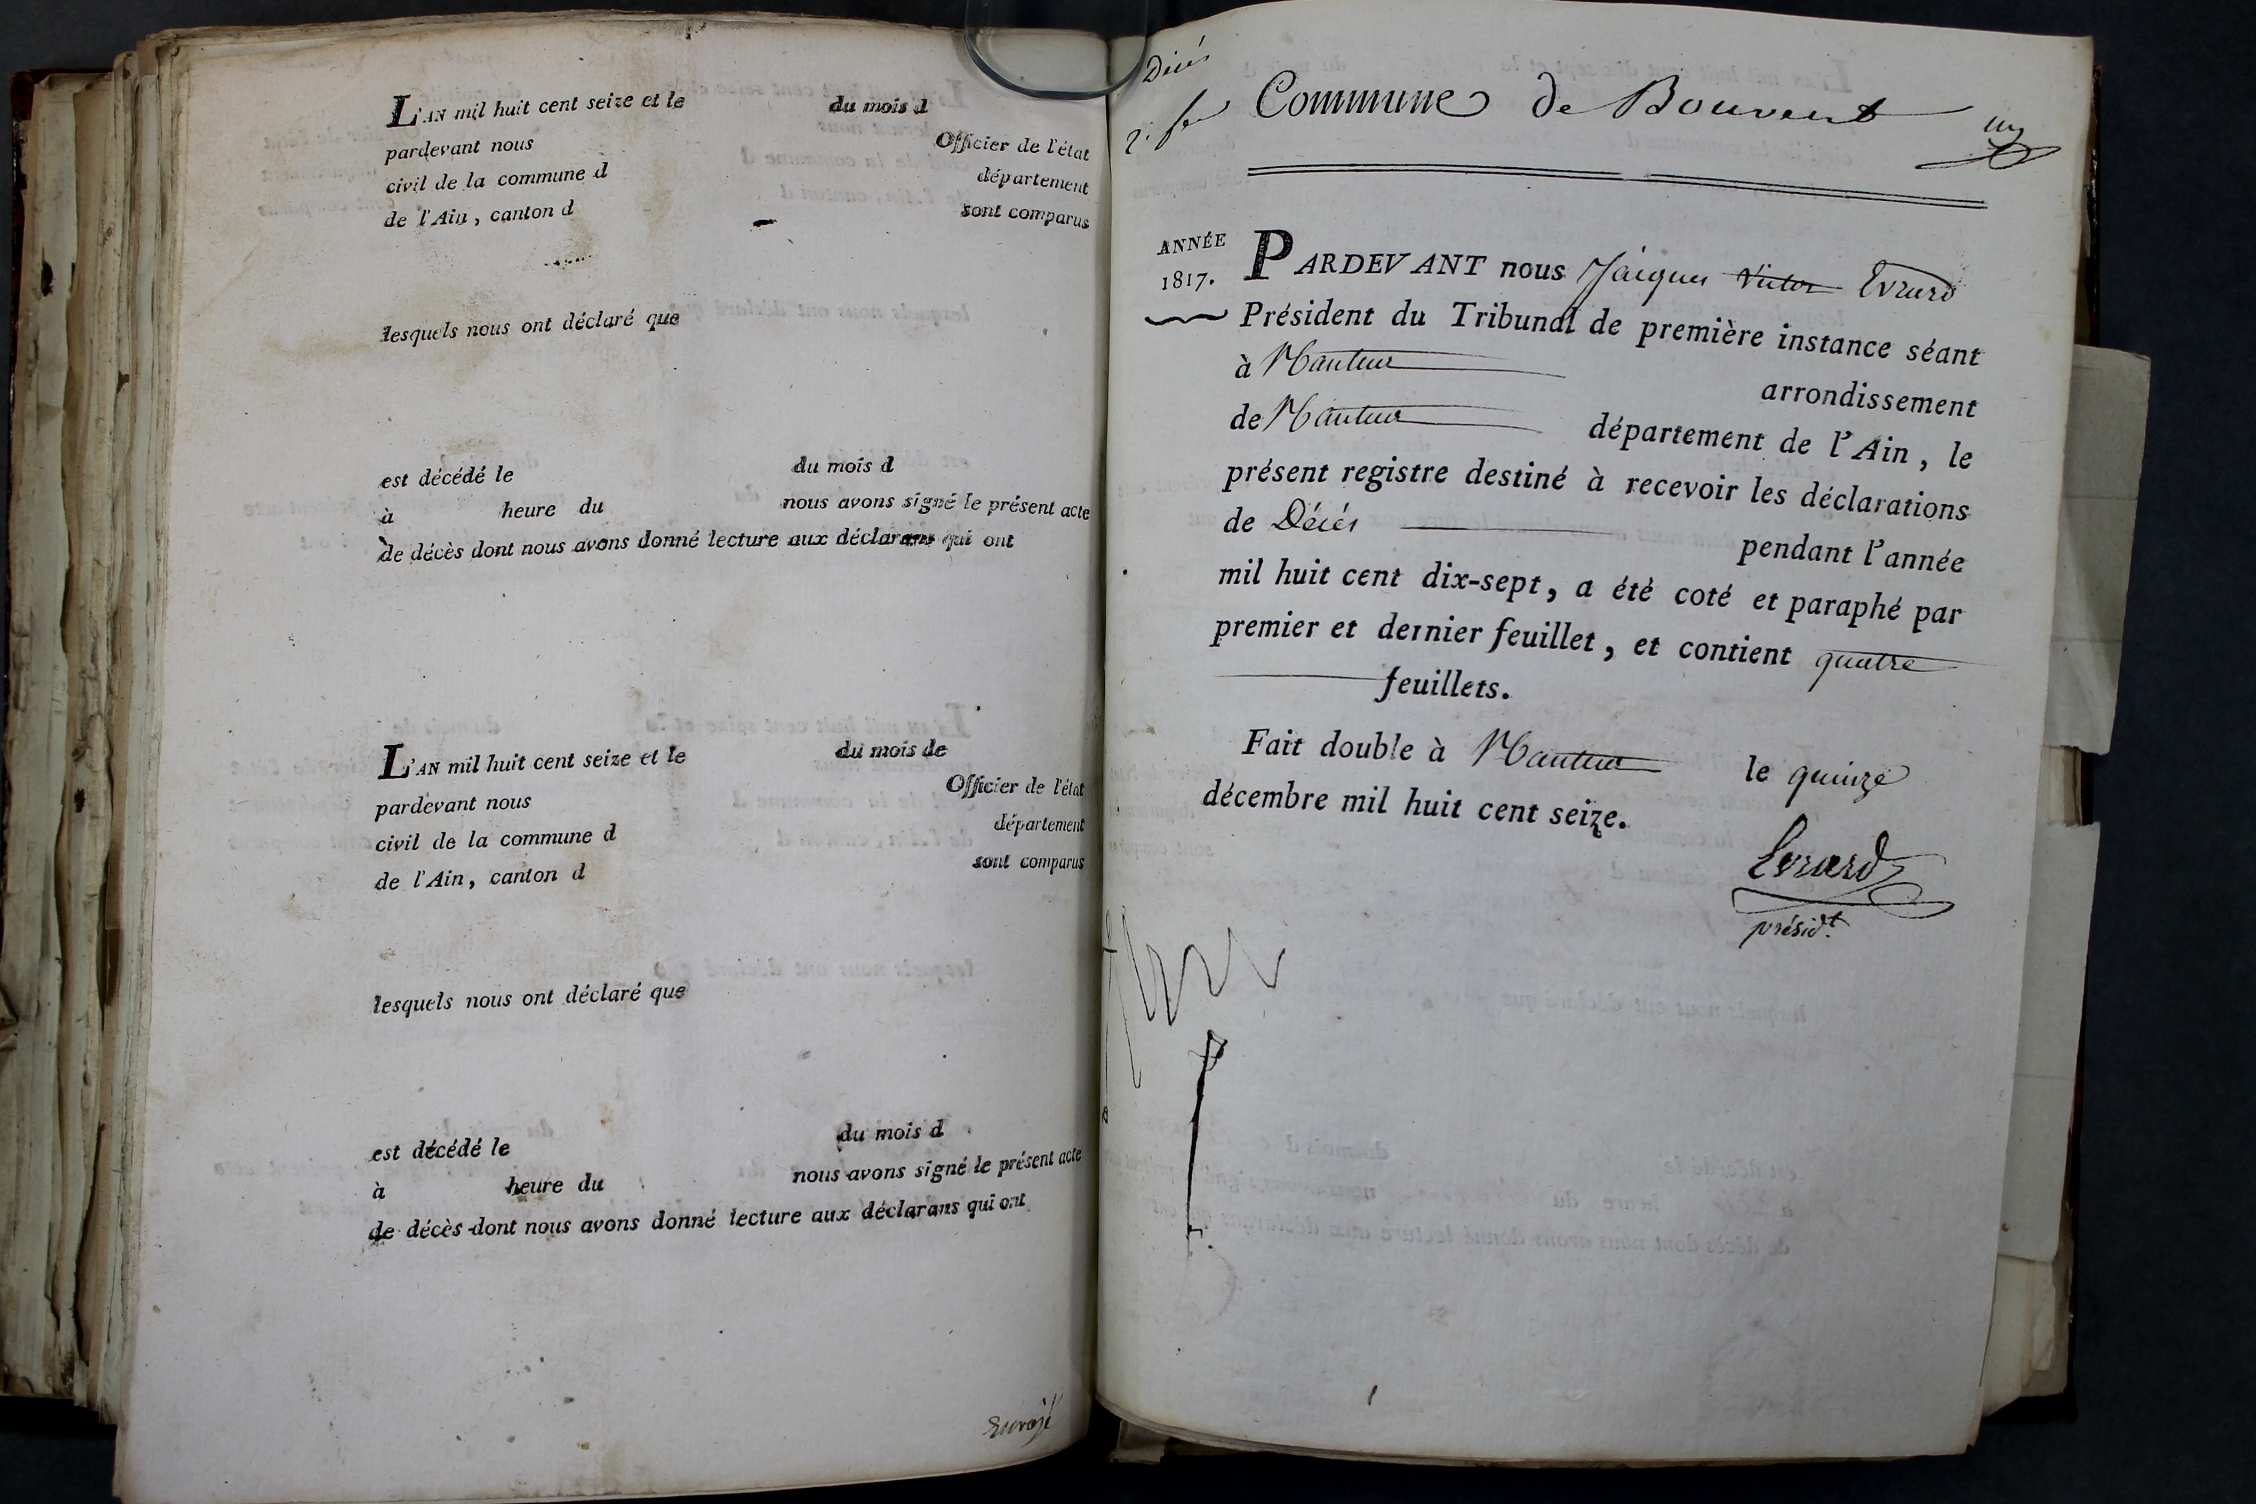 L'AN mil huit cent seize et le du mois d
pardevant nous Officier de l'état
civil de la commune d département
de l'Ain, canton d sont comparus
lesquels nous ont déclaré que
est décédé le du mois d
à heure du nous avons signé le présent acte
de décès dont nous avons donné lecture aux déclarans qui ont
L'AN mil huit cent seize et le du mois de
pardevant nous Officier de l'état
civil de la commune d département
de l'Ain, canton d sont comparus
lesquels nous ont déclaré que
est décédé le du mois d
à heure du nous avons signé le présent acte
de décès dont nous avons donné lecture aux déclarans qui ont
Décés
Commune de Bouvent
un
ANNÉE
1817.
PARDEVANT nous Jacques Victor Evrard
Président du Tribunal de première instance séant
à Nantua arrondissement
de Nantua département de l'Ain, le
présent registre destiné à recevoir les déclarations
de Décés pendant l'année
mil huit cent dix-sept, a été coté et paraphé par
premier et dernier feuillet, et contient quatre
feuillets.
Fait double à Nantua le quinze
décembre mil huit cent seize.
Evrard
présidt.